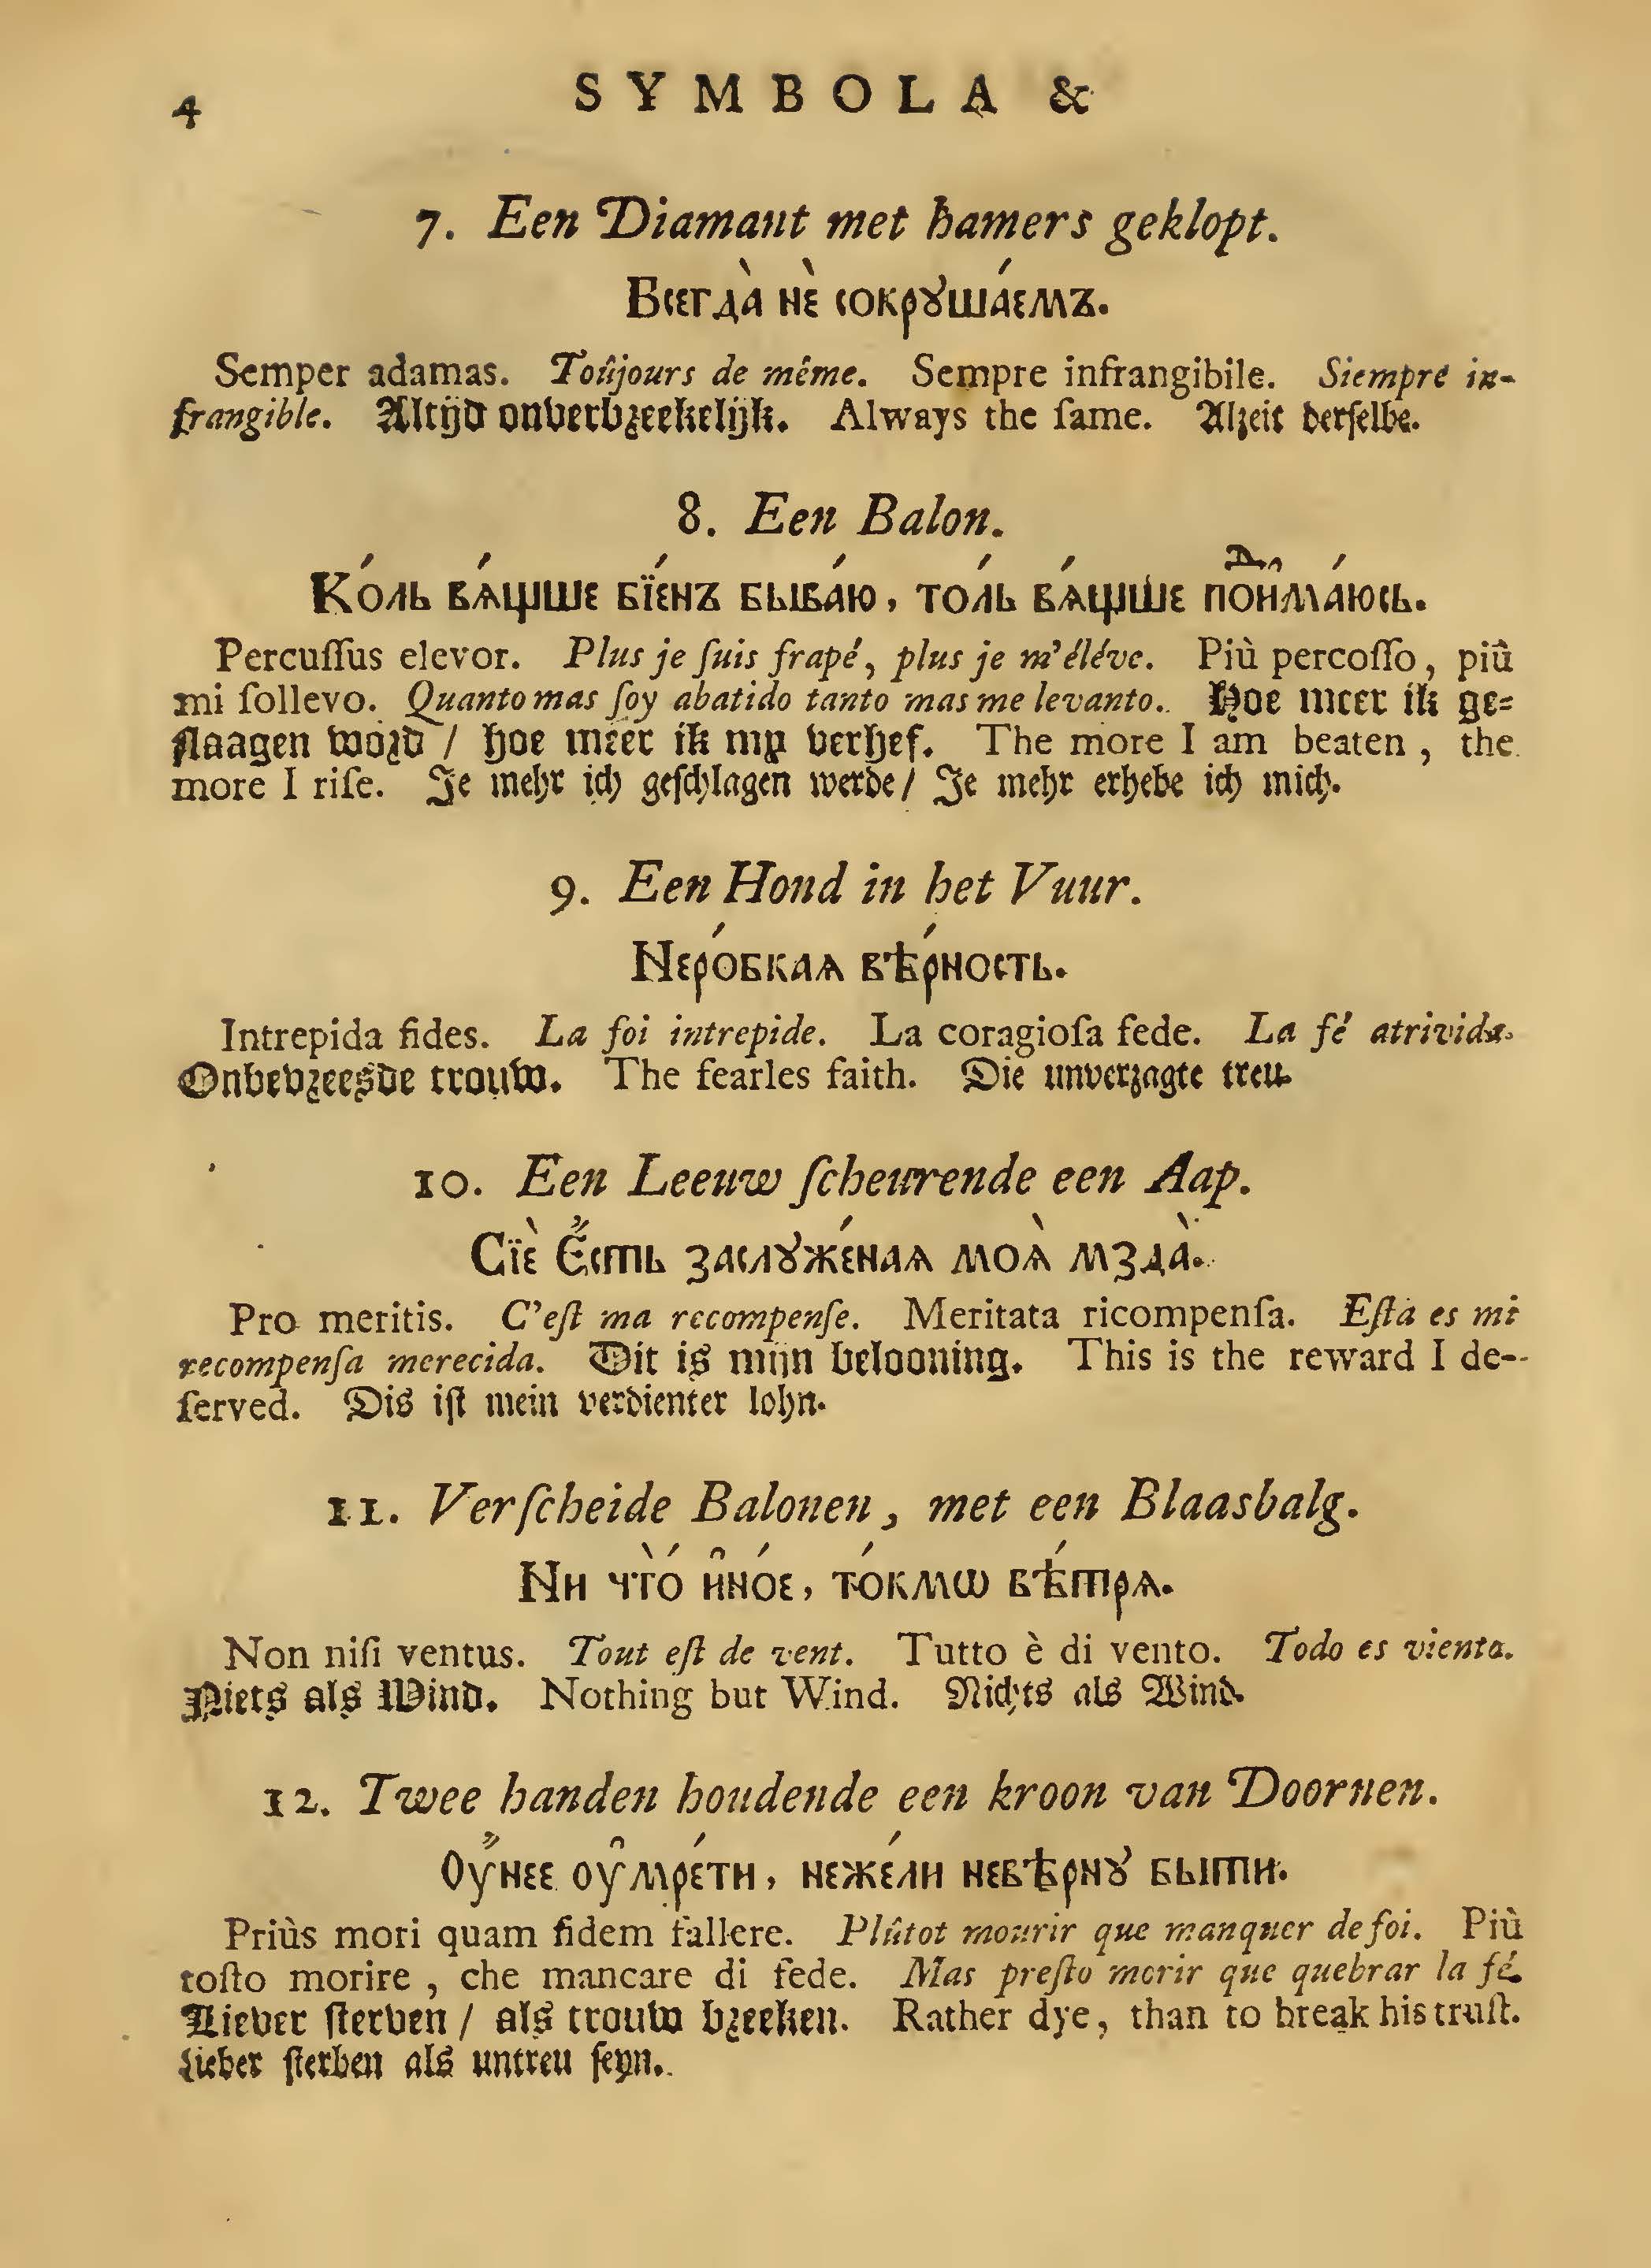 4 SYMBOLA &
7. Een Diamant met hamers geklopt.
Всегда̀ нѐ сокрꙋша́емъ.
Semper adamas. Toûjours de même. Sempre infrangibile. Siempre in-
frangible. Altijd onverbreekelijk. Always the ſame. Alzeit derſelbe.
8. Een Balon.
Ко́ль вѧ́щше бїе́нъ быва́ю, то́ль вѧ́щше поⷣи҆ма́юсь.
Percuſſus elevor. Plus je ſuis frapé, plus je m'éléve. Più percoſſo, piû
mi ſollevo. Quanto mas ſoy abatido tanto mas me levanto. Hoe meer ik ge-
ſlaagen word / hoe meer ik my verhef. The more I am beaten, the
more I riſe. Je mehr ich geſchlagen werde / Je mehr erhebe ich mich.
9. Een Hond in het Vuur.
Неро́бкаѧ вѣ́рность.
Intrepida fides. La foi intrepide. La coragioſa fede. La fé atrivida.
Onbevreesde trouw. The fearles faith. Die unverzagte treu.
10. Een Leeuw ſcheurende een Aap.
Сїѐ Є҆́сть заслꙋже́наѧ моѧ̀ мзда̀.
Pro meritis. C'eſt ma recompenſe. Meritata ricompenſa. Eſta es mi
recompenſa merecida. Dit is mijn belooning. This is the reward I de-
ſerved. Dis iſt mein verdienter lohn.
11. Verſcheide Balonen, met een Blaasbalg.
Ни что̀ и҆но́е, то́кмѡ вѣ́трѧ.
Non niſi ventus. Tout eſt de vent. Tutto è di vento. Todo es viento.
Niets als Wind. Nothing but Wind. Nichts als Wind.
12. Twee handen houdende een kroon van Doornen.
Оу҆́нее оу҆мре́ти, нежели́ невѣрнꙋ̀ быти.
Priùs mori quam fidem fallere. Plûtot mourir que manquer de foi. Più
toſto morire, che mancare di fede. Mas preſto morir que quebrar la fé.
Liever ſterven / als trouw breeken. Rather dye, than to break his truſt.
Lieber ſterben als untreu ſeyn.